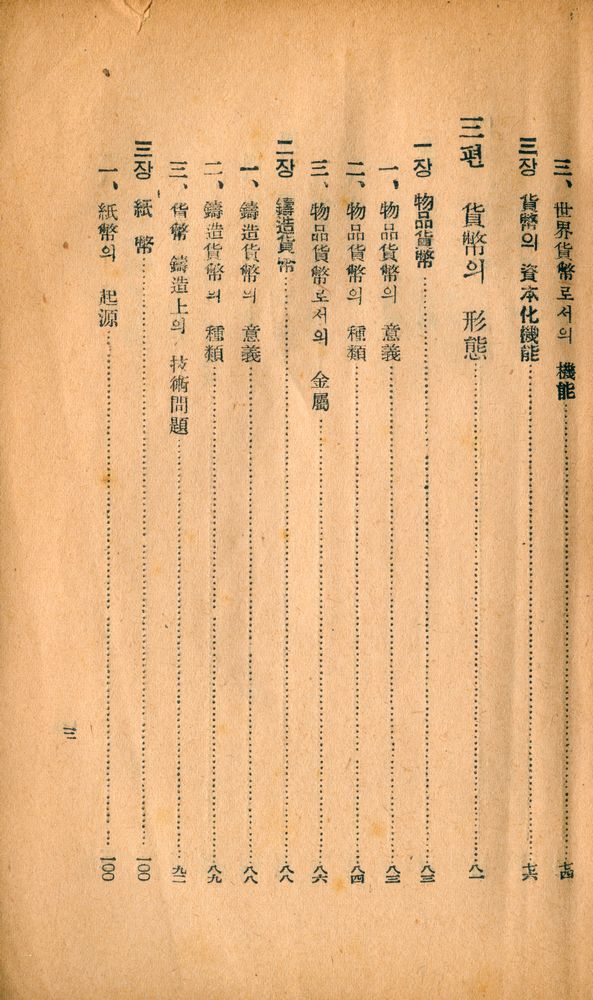 三、世界貨幣로서의 機能 七四
三장 貨幣의 資本化機能 七六
三편 貨幣의 形態 八一
一장 物品貨幣 八三
一、物品貨幣의 意義 八三
二、物品貨幣의 種類 八四
三、物品貨幣로서의 金屬 八六
二장 鑄造貨幣 八八
一、鑄造貨幣의 意義 八八
二、鑄造貨幣의 種類 八九
三、貨幣 鑄造上의 技術問題 九二
三장 紙幣 一〇〇
一、紙幣의 起源 一〇〇
三